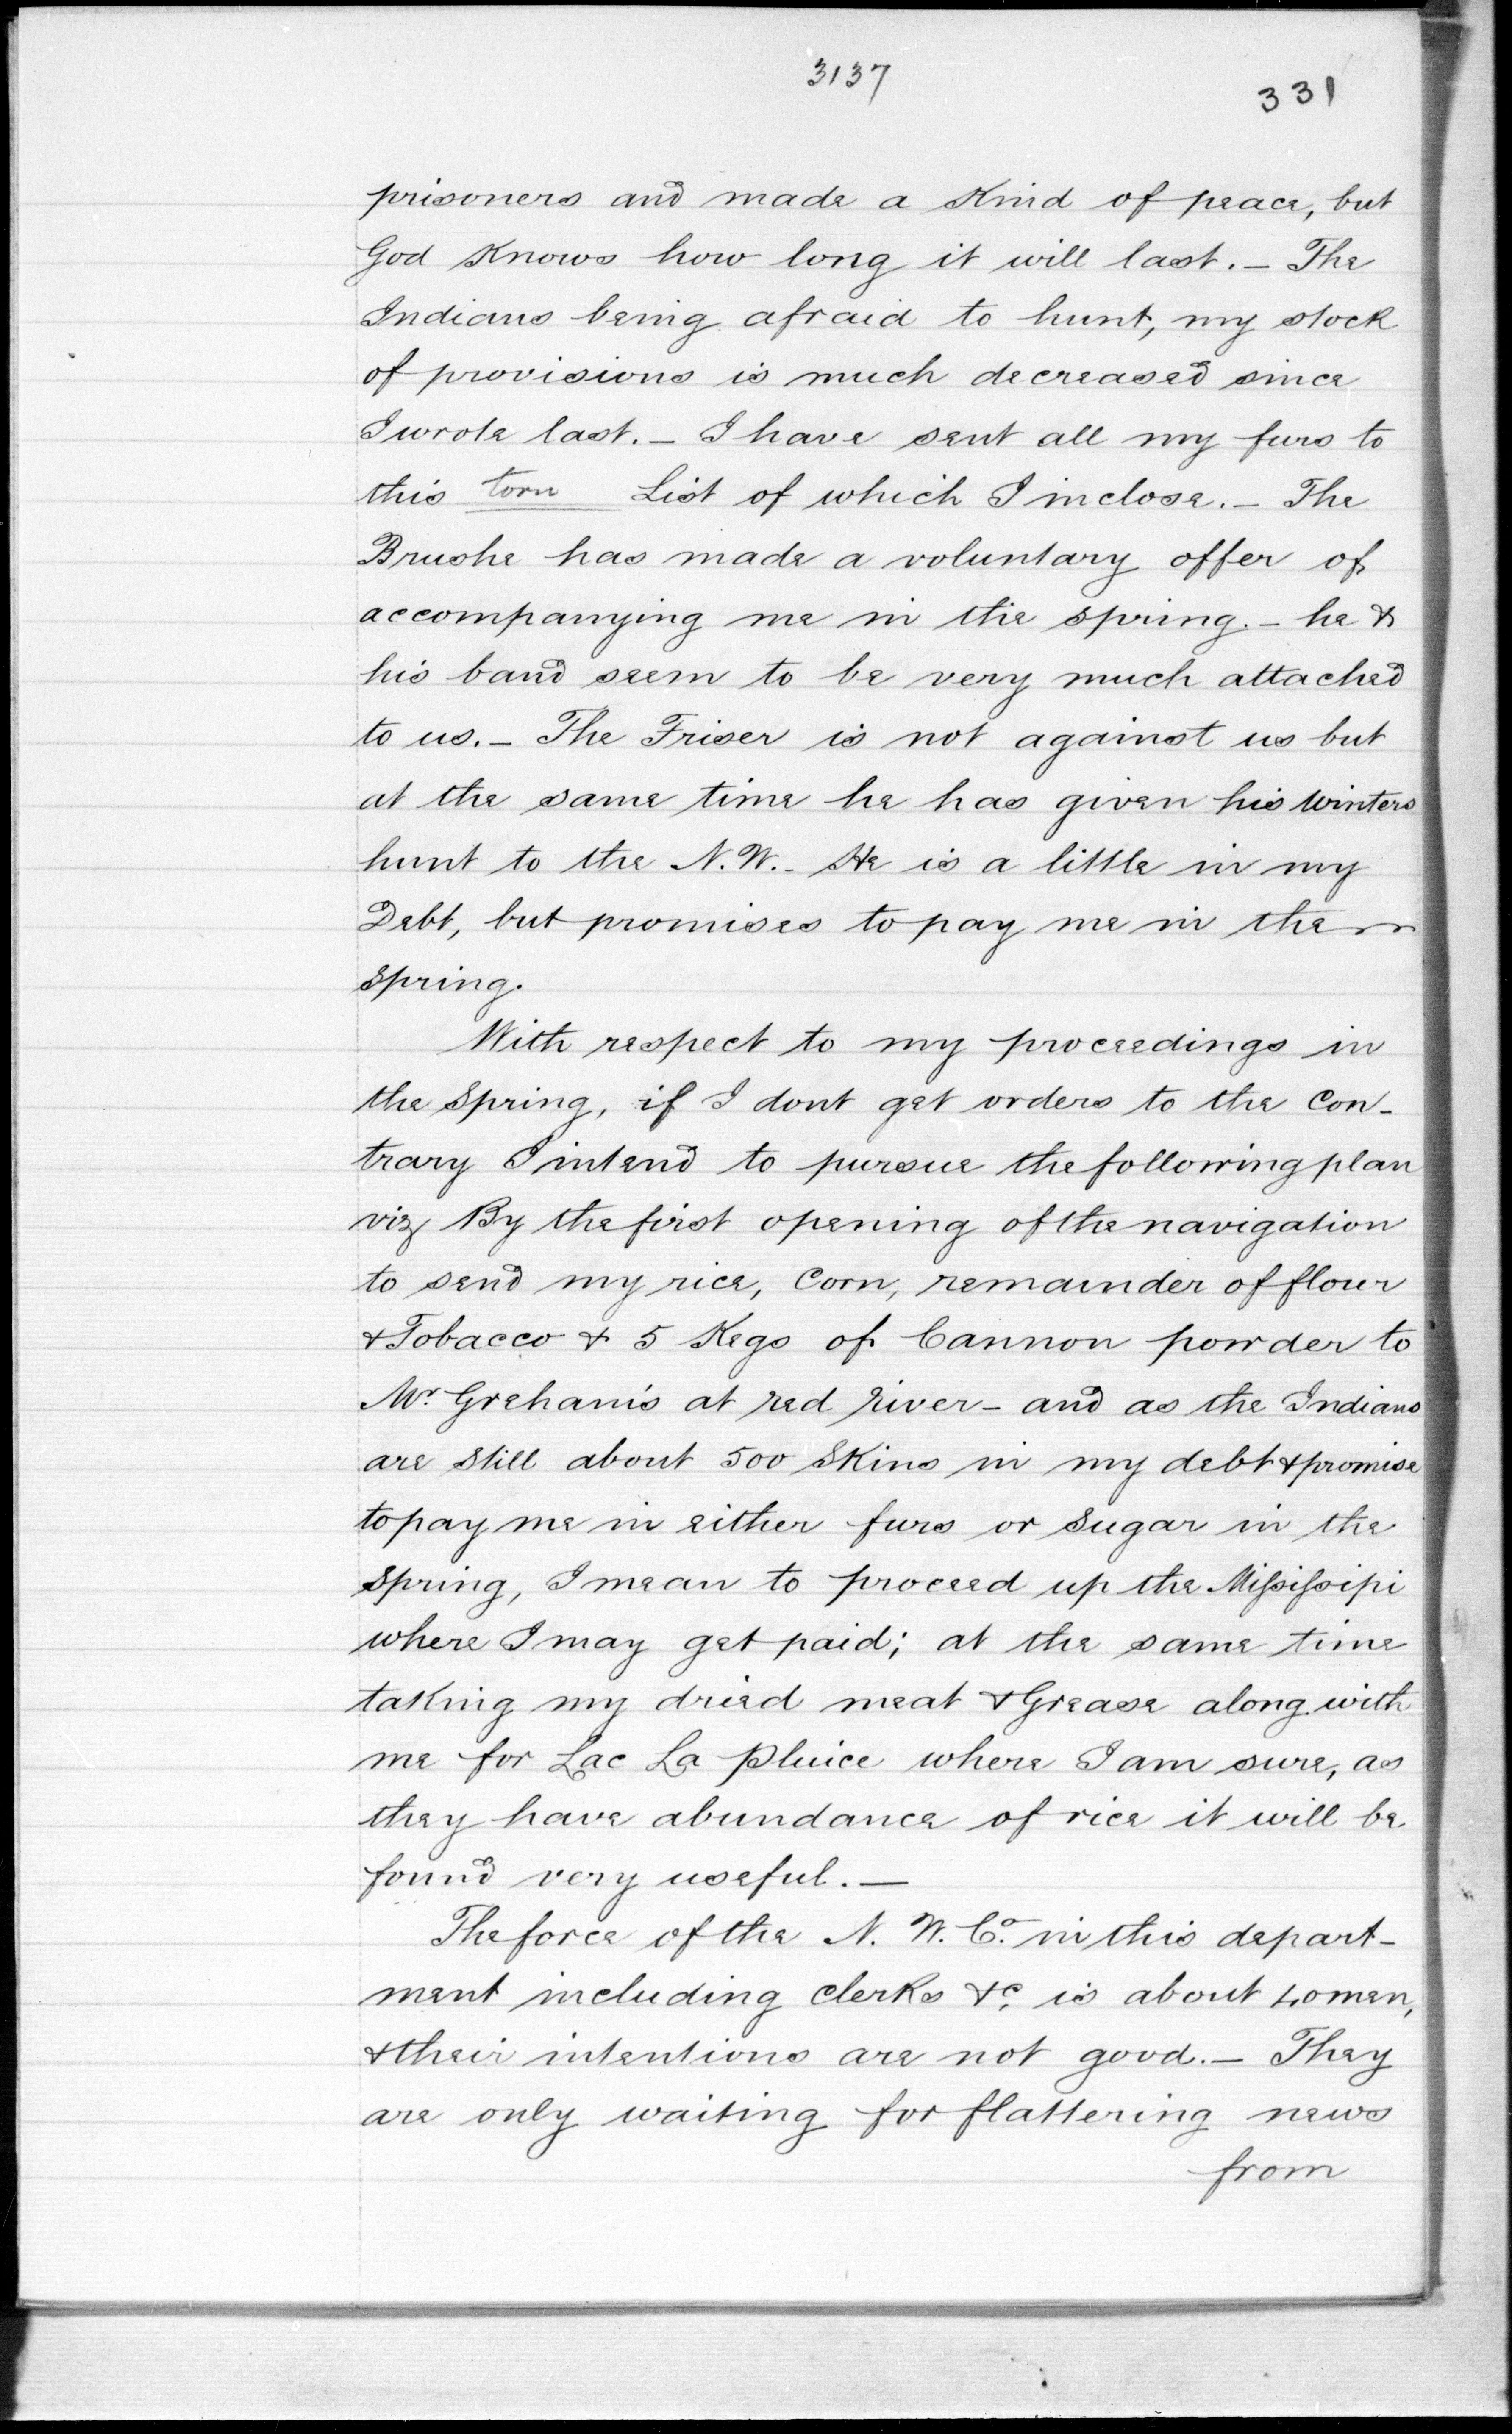 3137
331
prisoners and made a Kind of peace, but
God Knows how long it will last. – The
Indians being afraid to hunt, my stock
of provisions is much decreased since
I wrote last. – I have sent all my furs to
this torn List of which I inclose. – The
Brushe has made a voluntary offer of
accompanying me in the spring. – he &
his band seem to be very much attached
to us. – The Friser is not against us but
at the same time he has given his Winters
hunt to the N.W. – He is a little in my
Debt, but promises to pay me in the
Spring.
With respect to my proceedings in
the Spring, if I dont get orders to the Con-
trary I intend to pursue the following plan
viz By the first opening of the navigation
to send my rice, Corn, remainder of flour
& Tobacco & 5 Kegs of Cannon powder to
Mr. Grehams at red river – and as the Indians
are Still about 500 Skins in my debt & promise
to pay me in either furs or Sugar in the
Spring, I mean to proceed up the Missisipi
where I may get paid; at the same time
taking my dried meat & Grease along with
me for Lac La Pluice where I am sure, as
they have abundance of rice it will be
found very useful. —
The force of the N. W. Co. in this depart-
ment including Clerks &c. is about 40 men,
& their intentions are not good. – They
are only waiting for flattering news
from